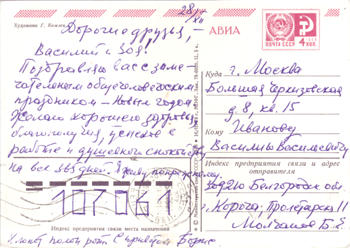 Художник Г. Комлев
28/XII
Дорогие друзья, –
Василий и Зоя!
Поздравляю вас с заме-
чательным общечеловеческим
праздником – Новым годом.
Желаю хорошего здоровья,
благополучия, успехов в
работе и душевного спокойствия
на все 365 дней. Я живу по-прежнему.
107061
Индекс предприятия связи места назначения
Борис
АВИА
ПОЧТА СССР
4 КОП
Куда г. Москва
Большая Черкизовская
д. 8, кв. 15
Кому Иванову
Василию Васильевичу
Индекс предприятия связи и адрес
отправителя
309210 Белгородская обл.
г. Короча, Пролетарская 11